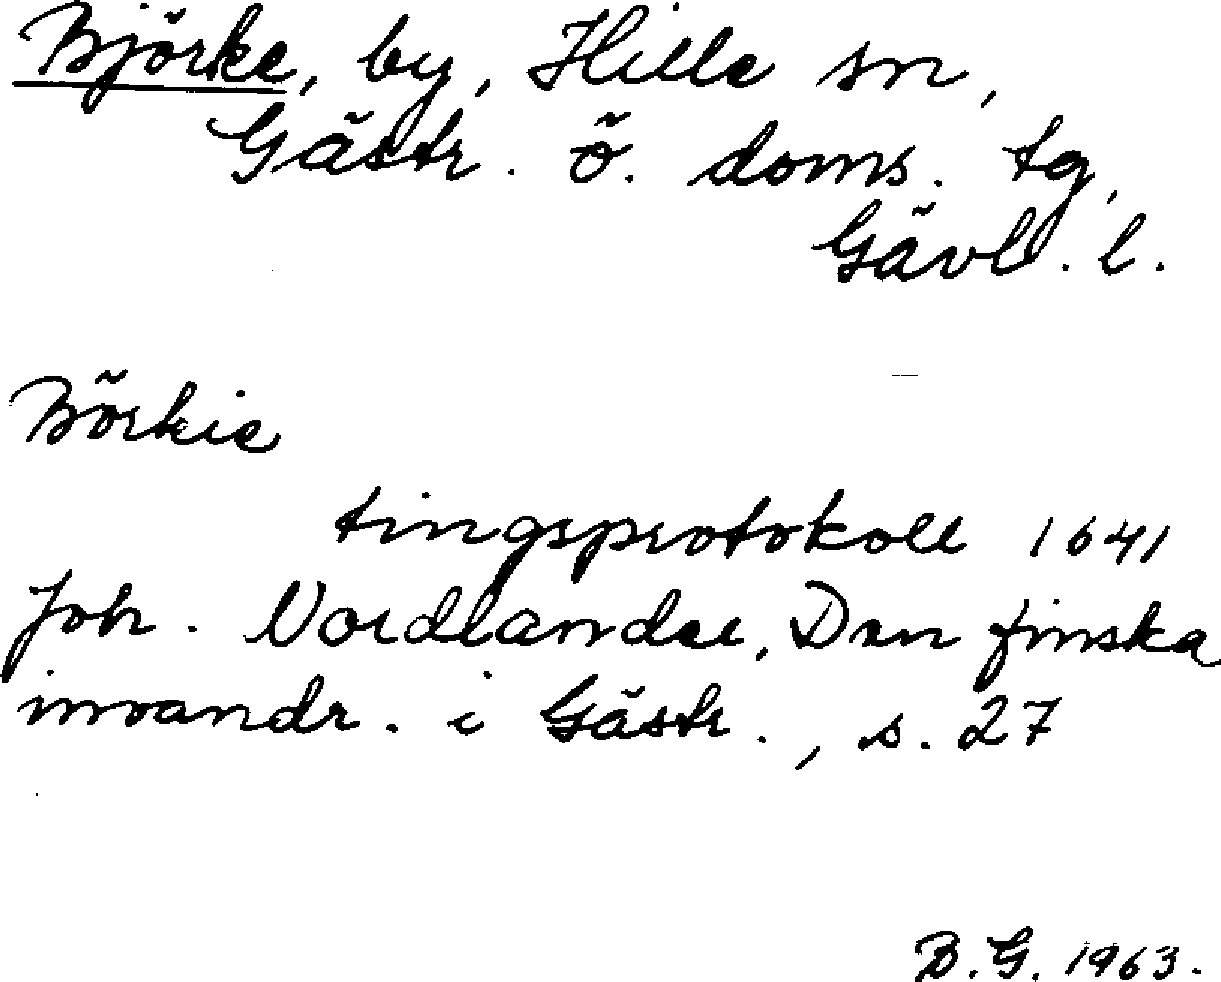 Björke, by, Hille sn,
Gästr. ö. doms. tg,
Gävl. l.
Börkie
tingsprotokoll 1641
Joh. Nordlander, Den finska
invandr. i Gästr., s. 27
B.G. 1963.